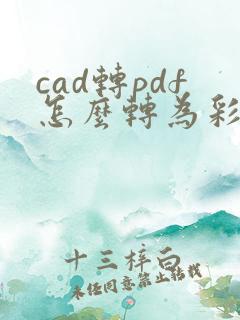 cad轉pdf
怎麼轉為彩
十三梓白
未經同意禁止轉載